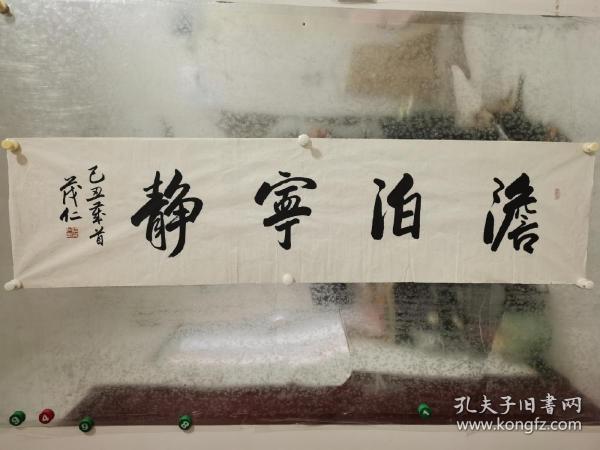 澹泊寧静
己丑歲首
茂仁
孔夫子旧書网
www.kongfz.com